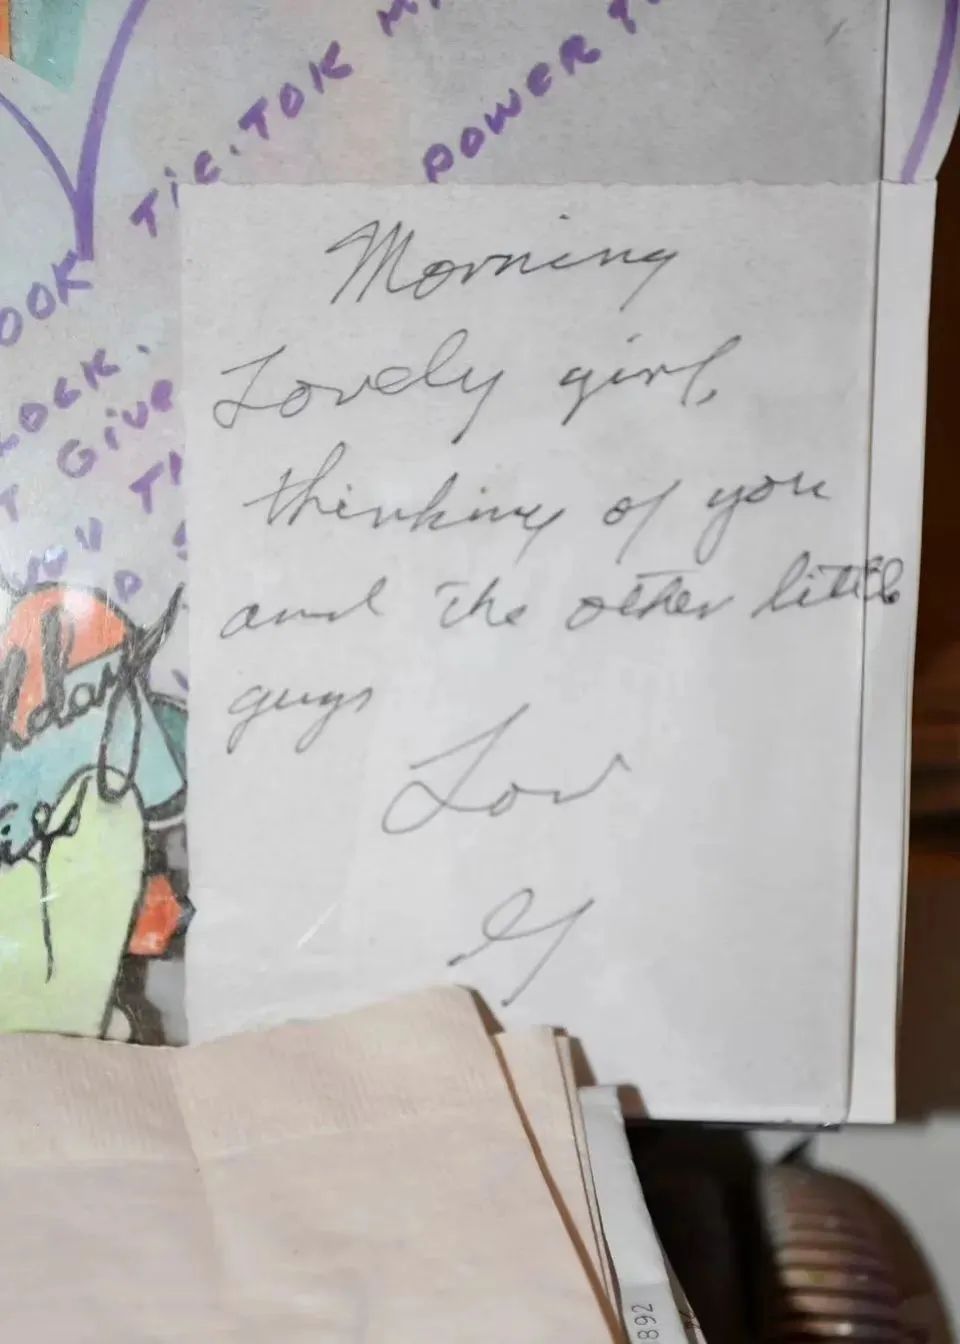 TIC.TOK
POWER
OOK
OCK.
GIVE
Morning
Lovely girl,
thinking of you
and the other little
guys
Lov
G
892